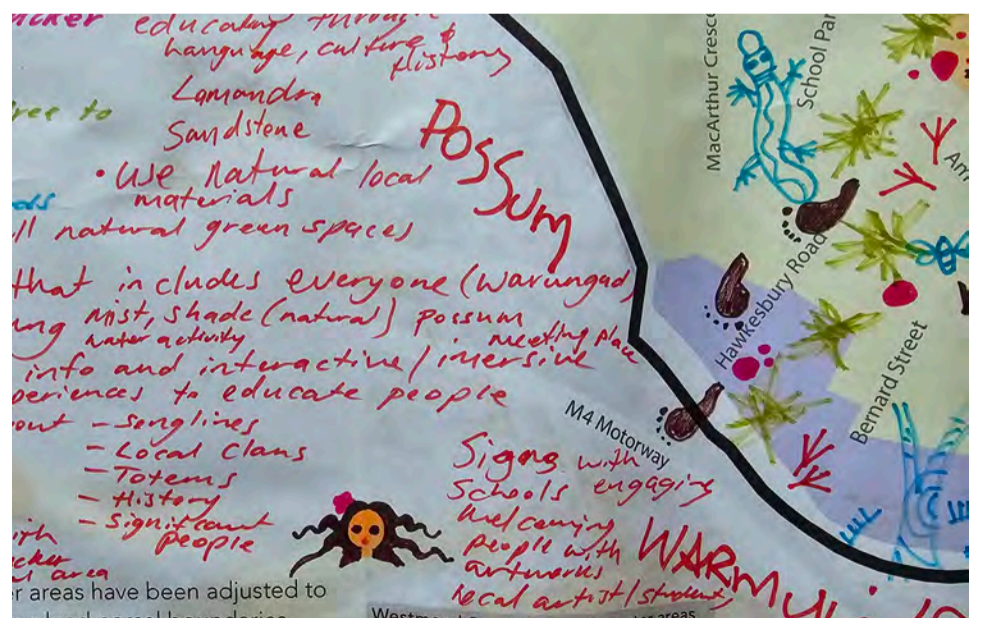 educating through
language, culture &
History
Lomandra
Sandstone
ree to
POSSUM
• Use natural local
materials
ll natural green spaces
that includes everyone (warungad)
ung mist, shade (natural) possum
water activity
meeting place
info and interactive/imersive
periences to educate people
out - Songlines
- Local Clans
- Totems
- History
- Significant
people
ith
cker
l area
Signs with
Schools engaging
welcoming
people with
artworks
local artist/students
WARMULI
r areas have been adjusted to
MacArthur Cresce
School Par
Hawkesbury Road
Bernard Street
M4 Motorway